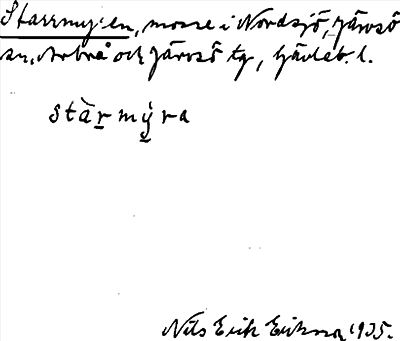 Starrmyren, mosse i Nordsjö, Järvsö
sn, Arbrå och Järvsö tg, Gävleb. l.
stàr̲mý̲ra
Nils Erik Eriksson 1935.